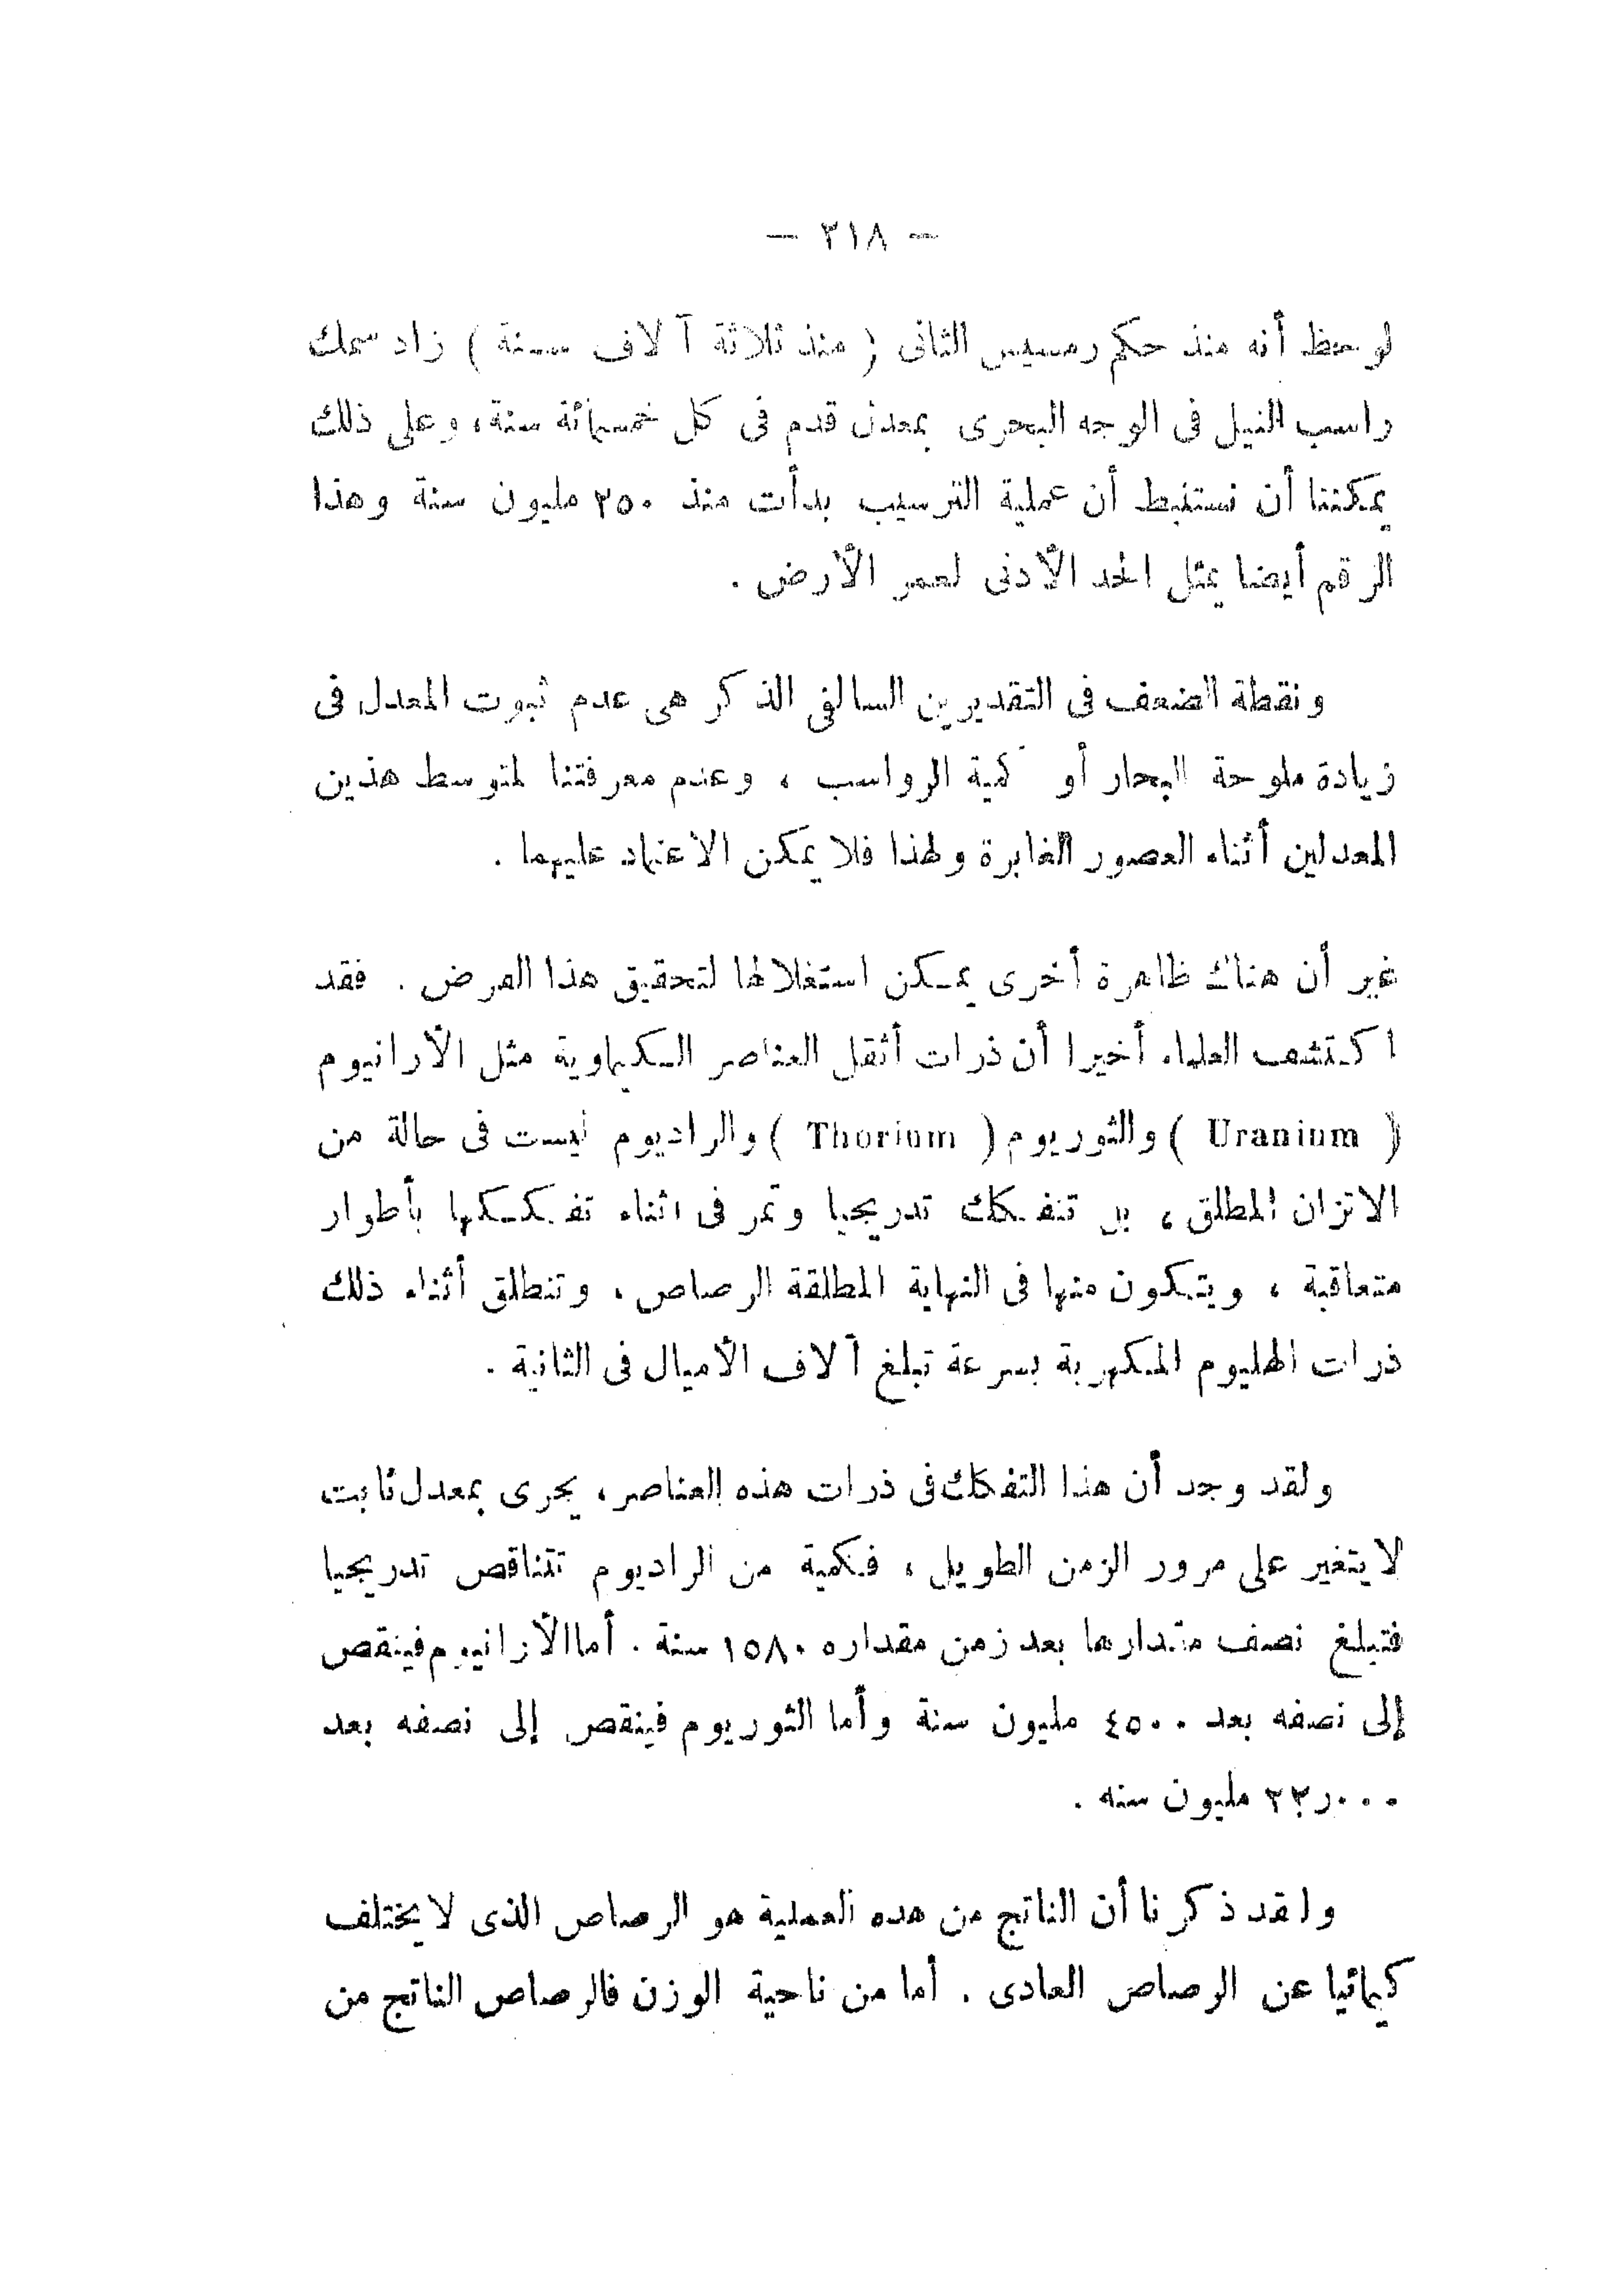 — ٣١٨ —
لوحظ أنه منذ حكم رمسيس الثانى ( منذ ثلاثة آلاف سنة ) زاد سمك
راسب النيل فى الوجه البحرى بمعدل قدم فى كل خمسمائة سنة، وعلى ذلك
يمكننا أن نستنبط أن عملية الترسيب بدأت منذ ٣٥٠ مليون سنة وهذا
الرقم أيضا يمثل الحد الأدنى لعمر الأرض .
ونقطة الضعف فى التقديرين السالفى الذكر هى عدم ثبوت المعدل فى
زيادة ملوحة البحار أو كمية الرواسب ، وعدم معرفتنا لمتوسط هذين
المعدلين أثناء العصور الغابرة ولهذا فلا يمكن الاعتماد عليهما .
غير أن هناك ظاهرة أخرى يمكن استغلالها لتحقيق هذا الغرض . فقد
اكتشف العلماء أخيرا أن ذرات أثقل العناصر الكيماوية مثل الأرانيوم
( Uranium ) والثوريوم ( Thorium ) والراديوم ليست فى حالة من
الاتزان المطلق ، بل تتفكك تدريجيا وتمر فى اثناء تفككها بأطوار
متعاقبة ، ويتكون منها فى النهاية المطلقة الرصاص ، وتنطلق أثناء ذلك
ذرات الهليوم المكهربة بسرعة تبلغ آلاف الأميال فى الثانية .
ولقد وجد أن هذا التفكك فى ذرات هذه العناصر، يجرى بمعدل ثابت
لا يتغير على مرور الزمن الطويل ، فكمية من الراديوم تتناقص تدريجيا
فتبلغ نصف مقدارها بعد زمن مقداره ١٥٨٠ سنة . أما الأرانيوم فينقص
إلى نصفه بعد ٤٥٠٠ مليون سنة وأما الثوريوم فينقص إلى نصفه بعد
٢٢ر٠٠٠ مليون سنه .
ولقد ذكرنا أن الناتج من هده العملية هو الرصاص الذى لا يختلف
كيمائيا عن الرصاص العادى . أما من ناحية الوزن فالرصاص الناتج من